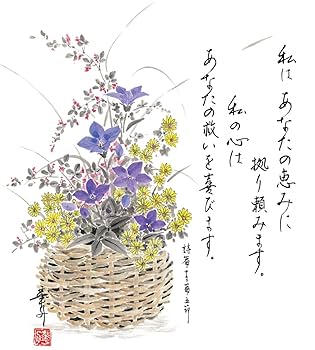 私は あなたの恵みに
拠り頼みます。
私の心は
あなたの救いを喜びます。
詩篇十三篇五節